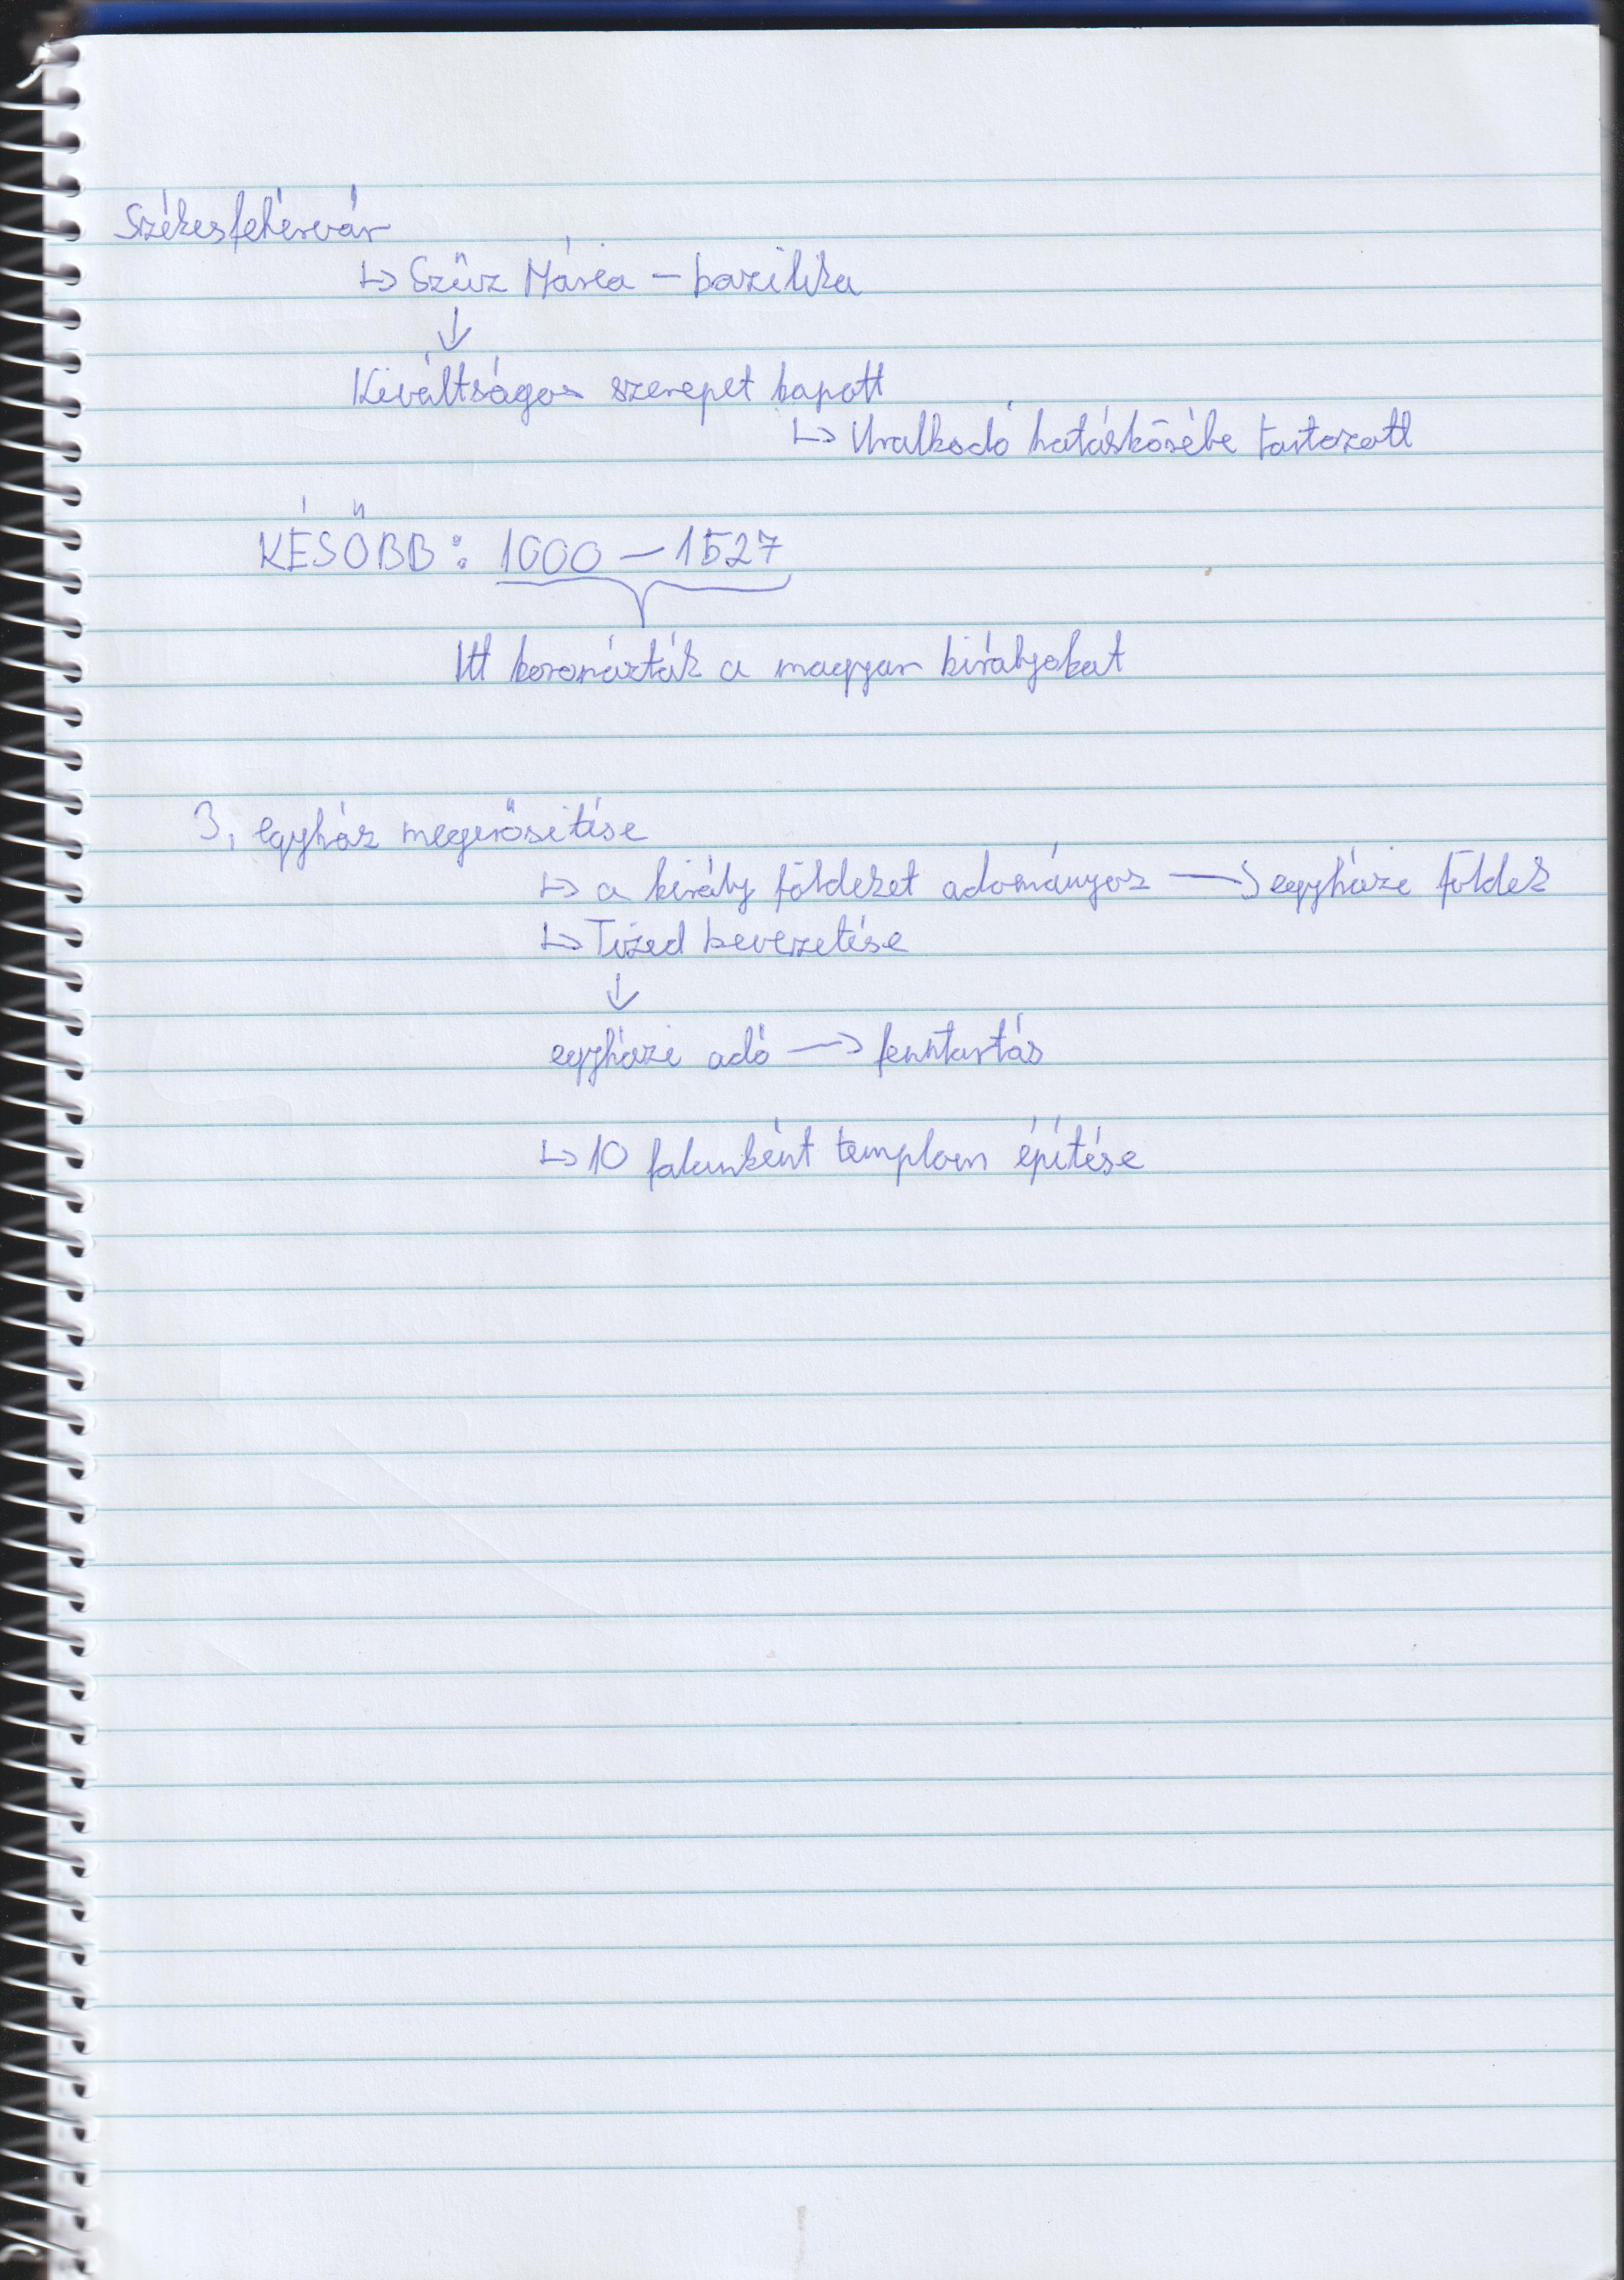 Székesfehérvár
↳ Szűz Mária – bazilika
↓
Kiváltságos szerepet kapott
↳ Uralkodó hatáskörébe tartozott
KÉSŐBB: 1000 – 1527
Itt koronázták a magyar királyokat
3, egyház megerősítése
↳ a király földeket adományoz → egyházi földek
↳ Tized bevezetése
↓
egyházi adó → fenntartás
↳ 10 falunként templom építése